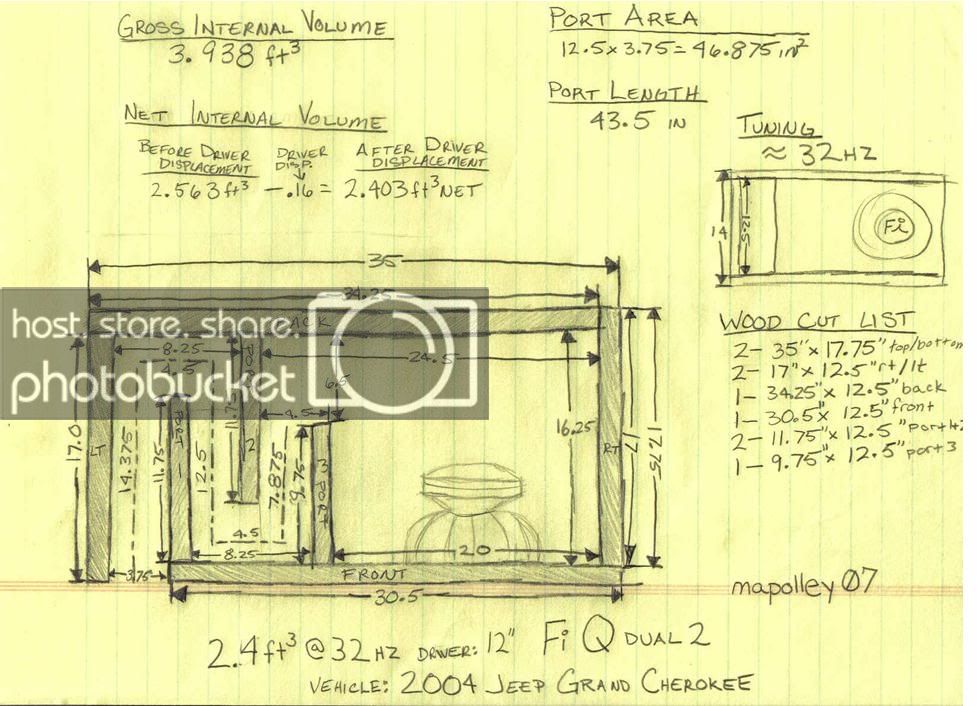 GROSS INTERNAL VOLUME
3.938 ft³
PORT AREA
12.5 x 3.75 = 46.875 in²
PORT LENGTH
43.5 IN
NET INTERNAL VOLUME
BEFORE DRIVER DISPLACEMENT
DRIVER DISP.
AFTER DRIVER DISPLACEMENT
2.563 ft³ - .16 = 2.403 ft³ NET
TUNING
≈ 32 HZ
14
12.5
Fi
35
34.25
BACK
host. store. share.
photobucket
8.25
4.5
24.5
6.5
4.5
17.0
LT
14.375
11.75
PORT
12.5
11.75
2
7.875
9.75
3 PORT
16.25
RT
17
17.75
4.5
8.25
20
3.75
FRONT
30.5
WOOD CUT LIST
2- 35" x 17.75" top/bottom
2- 17" x 12.5" rt/lt
1- 34.25" x 12.5" back
1- 30.5 x 12.5" front
2- 11.75" x 12.5" "port 1+2
1- 9.75" x 12.5" port 3
mapolley 07
2.4 ft³ @ 32 HZ DRIVER: 12" Fi Q DUAL 2
VEHICLE: 2004 JEEP GRAND CHEROKEE